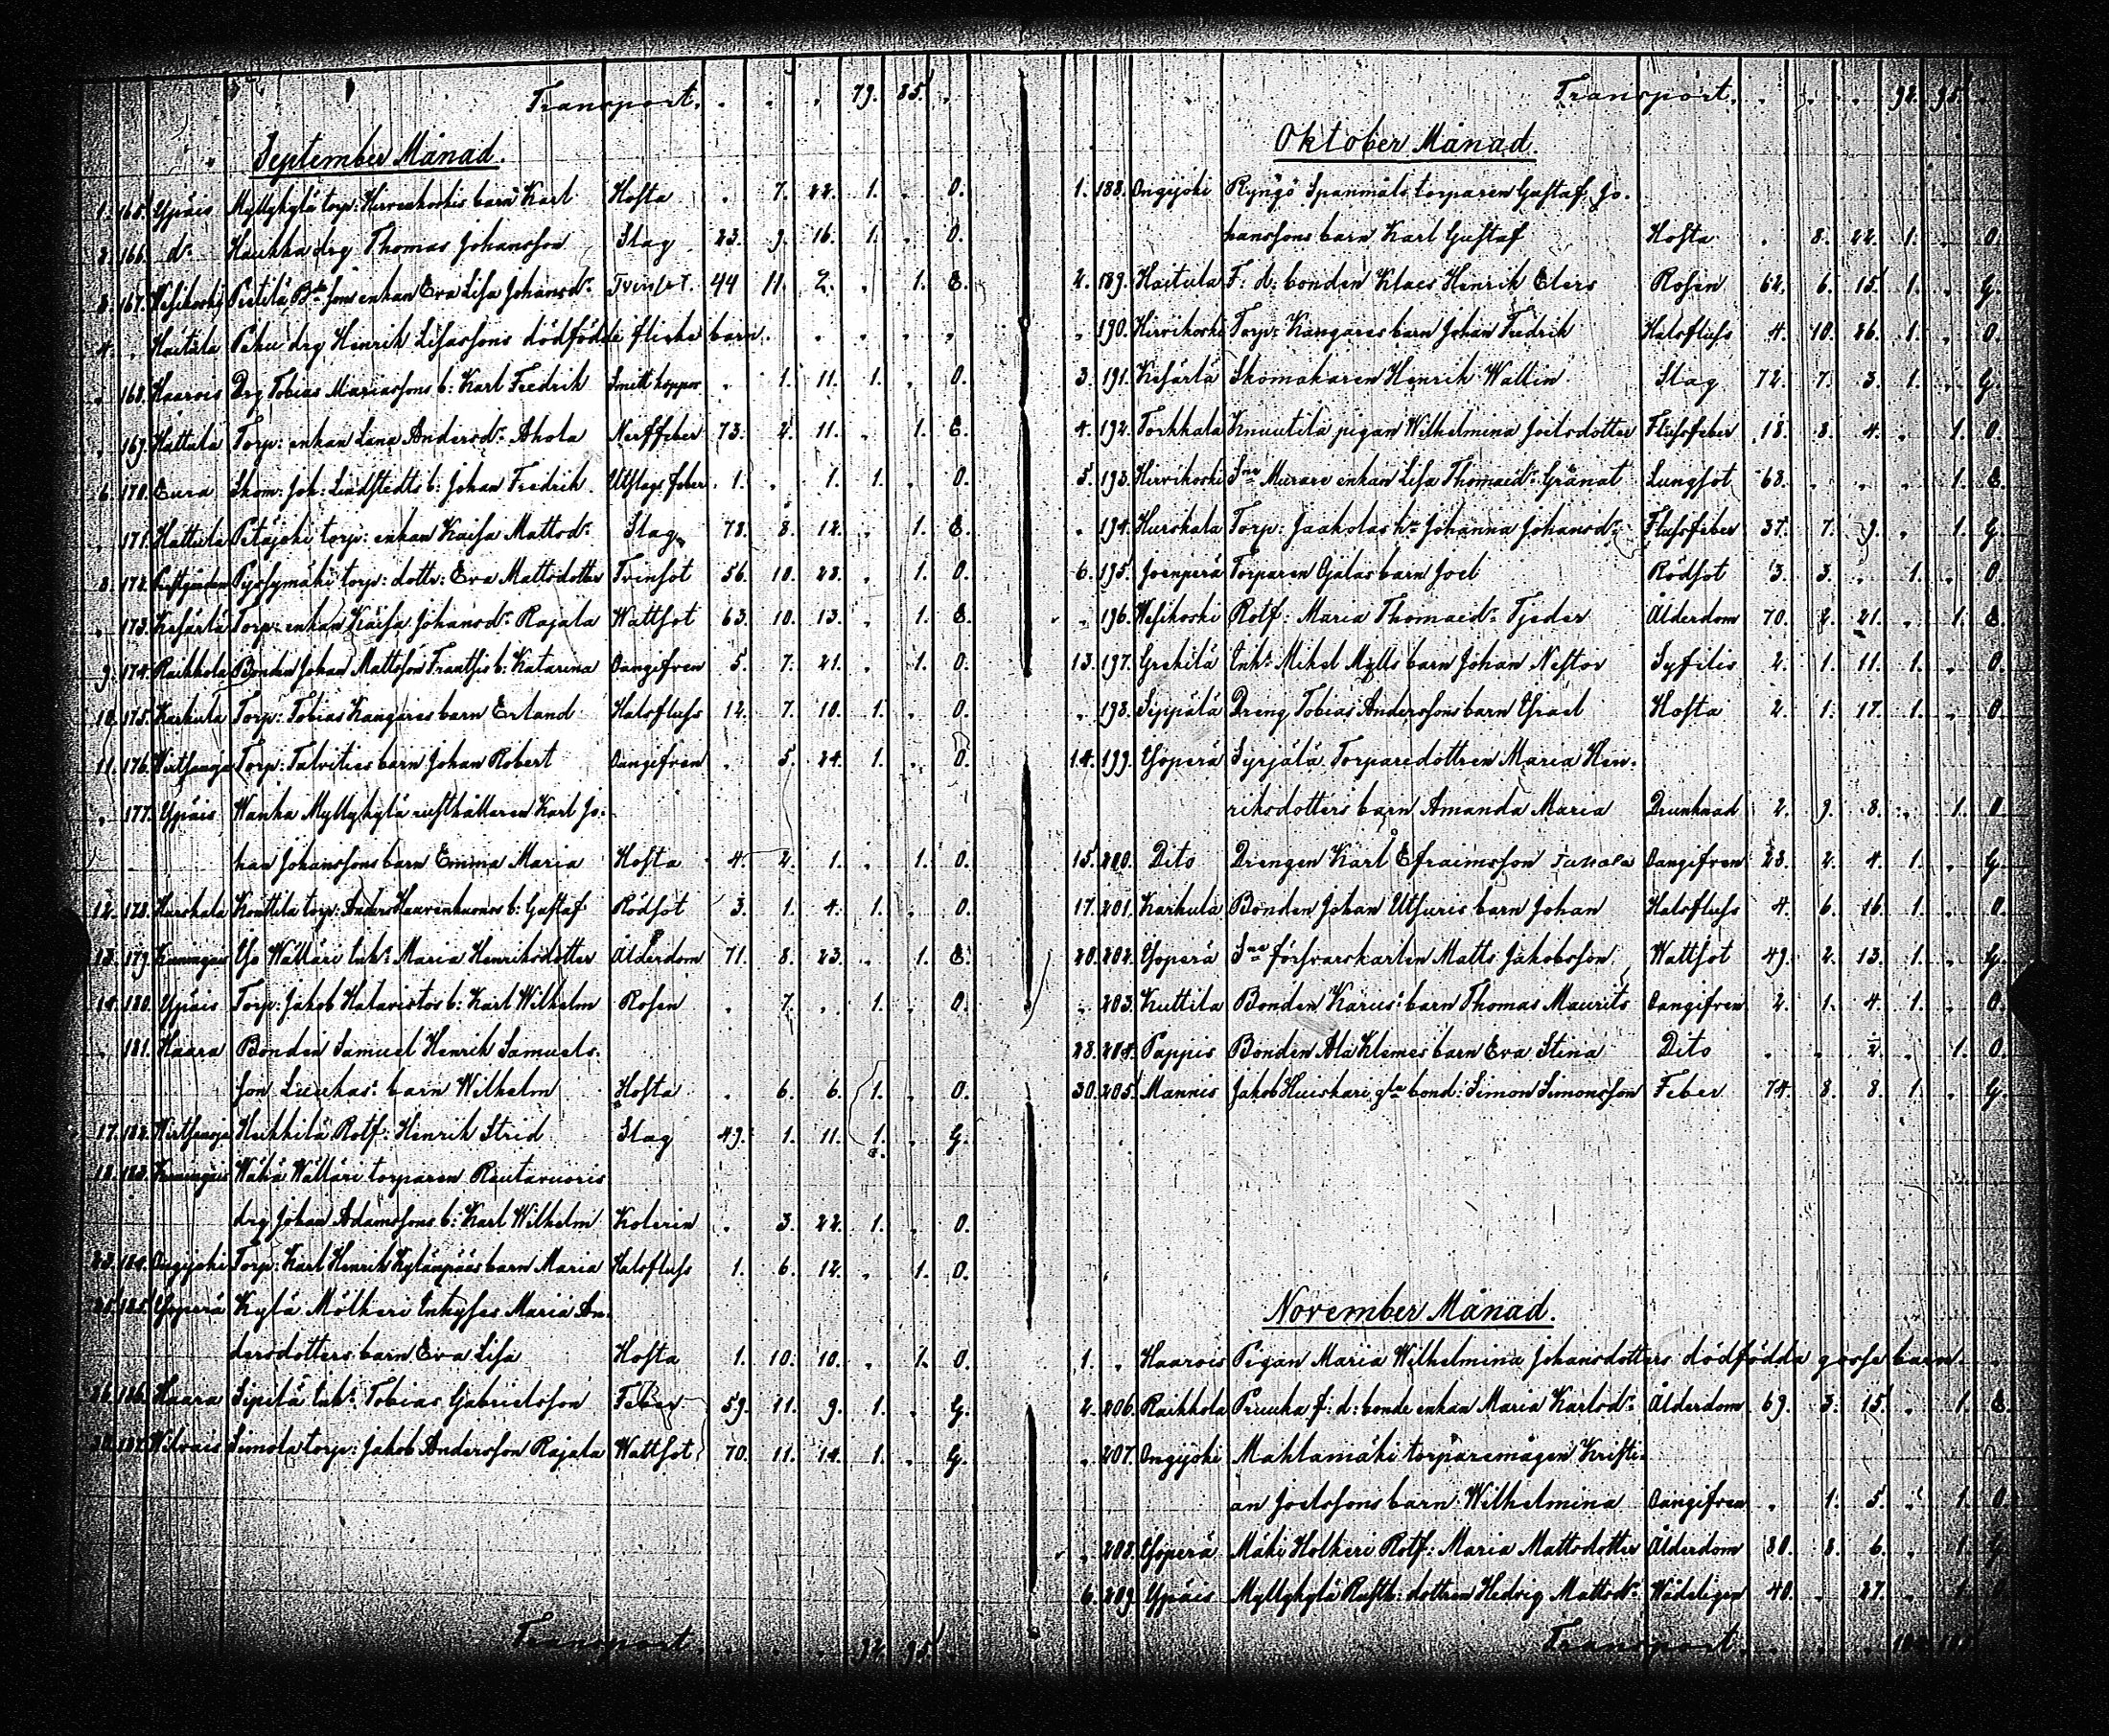 Transport. . . . 79. 85. .
September Månad.
1. 165. Ypäis Myllykylä torp: Hirvenkoskis barn Karl Hosta . 7. 22. 1. . O.
2. 166. do Haukka drg Thomas Johansson Slag 23. 9. 16. 1. . O.
3. 167. Wesikoski Pietilä Bde sons enkan Eva Lisa Johansdr Tvinsot. 44 11. 2. . 1. E.
4. . Haitula Peku drg Henrik Lisassons dödfödde flicke barn . . . . .
. 168. Haarois Drg Tobias Mariassons b: Karl Fredrik Smittkoppor . 1. 11. 1. . O.
. 169. Hattula Torp: enkan Lena Andersdr Ahola Nerffeber 73. 2. 11. . 1. E.
6. 170. Eura Skom: Joh: Lindstedts b: Johan Fredrik Utslags feber 1. . 1. 1. . O.
. 171. Hattula Petäjoki torp: enkan Kaisa Mattsdr Slag 78. 8. 12. . 1. E.
8. 172. Pyssymäki torp: dottr: Eva Mattsdotter Tvinsot 56. 10. 28. . 1. O.
. 173. Kesärlä Torp: enkan Kaisa Johansdr Rajala Wattsot 63. 10. 13. . 1. E.
9. 174. Raikkola Bonden Johan Mattsson Franssis b: Katarina Oangifven 5. 7. 21. . 1. O.
10. 175. Karhula Torp: Tobias Kangares barn Erland Halsfluss 12. 7. 10. 1. . O.
11. 176. Wirtsanoja Torp: Talvities barn Johan Robert Oangifven . 5. 24. 1. . O.
. 177. Ypäis Wanha Myllykylä rusthållaren Karl Jo-
han Johanssons barn Emma Maria Hosta 4. 2. 1. . 1. O.
12. 178. Hurskala Konttila torp: Anders Haavenkuonos b: Gustaf Rödsot 3. 1. 4. 1. . O.
13. 179. Kaningais Iso Wälläri Inhs Maria Henriksdotter Ålderdom 71. 8. 23. . 1. E.
14. 180. Ypäis Torp: Jakob Hatavistos b: Karl Wilhelm Rosen . 7. . 1. . O.
. 181. Haara Bonden Samuel Henrik Samuels-
son Luukas: barn Wilhelm Hosta . 6. 6. 1. . O.
17. 182. Wirtsanoja Heikkilä Rotf: Henrik Strid Slag 49. 1. 11. 1. . G.
18. 183. Kaningais Wähä Wälläri torparen Rautavuoris
drg Johan Adamssons b: Karl Wilhelm Kolerin . 3. 22. 1. . O.
23. 184. Ongijoki Torp: Karl Henrik Kylänpääs barn Maria Halsfluss 1. 6. 12. . 1. O.
25. 185. Isoperä Kylä Mölkeri Inhyses Maria An-
dersdotters barn Eva Lisa Hosta 1. 10. 10. . 1. O.
26. 186. Haara Sipilä Inhs Tobias Gabrielsson Feber 59. 11. 9. 1. . G.
30. 187. Wilvais Simola torp: Jakob Andersson Rajala Wattsot 70. 11. 14. 1. . G.
Transport. . . . 92. 95. .
Transport. . . . 92. 95. .
Oktober Månad.
1. 188. Ongijoki Ryngö Spanmåls torparen Gustaf Jo-
hanssons barn Karl Gustaf Hosta . 8. 22. 1. . O.
2. 189. Haitula F: d: bonden Klaes Henrik Elers Rosen 62. 6. 15. 1. . G.
. 190. Hirvikoski Torp: Kangares barn Johan Fredrik Halsfluss 4. 10. 26. 1. . O.
3. 191. Kesärlä Skomakaren Henrik Wallin Slag 72. 7. 3. 1. . G.
4. 192. Torkkala Knuutila pigan Wilhelmina Joelsdotter Flussfeber 18. 8. 4. . 1. O.
5. 193. Hirvikoski Sne Murare enkan Lisa Thomaedr Granat Lungsot 68. . . . 1. E.
. 194. Hurskala Torp: Jaakolas hu Johanna Johansdr Flussfeber 37. 7. 9. . 1. G.
6. 195. Joenperä Torparen Ojalas barn Joel Rödsot 3. 3. . 1. . O.
. 196. Wesikoski Rotf: Maria Thomaedr Tjeder Ålderdom 70. 2. 21. . 1. E.
13. 197. Grekilä Inhs Mikel Mylls barn Johan Nestor Syfilis 2. 1. 11. 1. . O.
. 198. Seppälä Dreng Tobias Anderssons barn Israel Hosta 2. 1. 17. 1. . O.
14. 199. Isoperä Syrjälä Torparedottren Maria Hen-
riksdotters barn Amanda Maria Drunknad 2. 9. 8. . 1. O.
15. 200. Dito Drengen Karl Efraimsson Takala Oangifven 23. 2. 4. 1. . G.
17. 201. Karhula Bonden Johan Utsuris barn Johan Halsfluss 4. 6. 16. 1. . O.
20. 202. Isoperä Sne försvarskarlen Matts Jakobsson Wattsot 49. 2. 13. 1. . G.
. 203. Kuttila Bonden Karus: barn Thomas Maurits Oangifven 2. 1. 4. 1. . O.
28. 204. Pappis Bonden Ala Klemes barn Eva Stina Dito . . 2. . 1. O.
30. 205. Mannis Jakob Huiskare gla bond: Simon Simonsson Feber 74. 8. 8. 1. . G.
November Månad.
1. . Haarois Pigan Maria Wilhelmina Johansdotters dödfödda gosse barn.
2. 206. Raikkola Pruuka f: d: bonde enkan Maria Karlsdr Ålderdom 69. 3. 15. . 1. E.
. 207. Ongijoki Mahlamäki torparemågen Kristi-
an Joelssons barn Wilhelmina Oangifven . 1. 5. . 1. O.
. 208. Isoperä Mäki Holkeri Rotf: Maria Mattsdotter Ålderdom 80. 8. 6. . 1. G.
6. 209. Ypäis Myllykylä Rusth: dottren Hedvig Mattsdr Wådeligen 40. . 27. . 1.
Transport. . . .